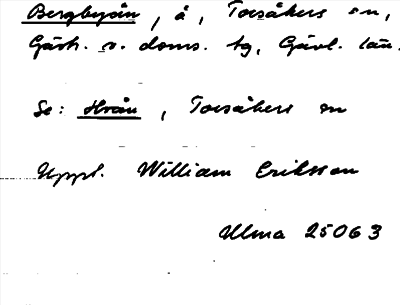 Bergbyån, å, Torsåkers sn,
Gästr. v. doms. tg, Gävl. län.
Se: Hoån, Torsåkers sn
Uppl. William Eriksson
Ulma 25063